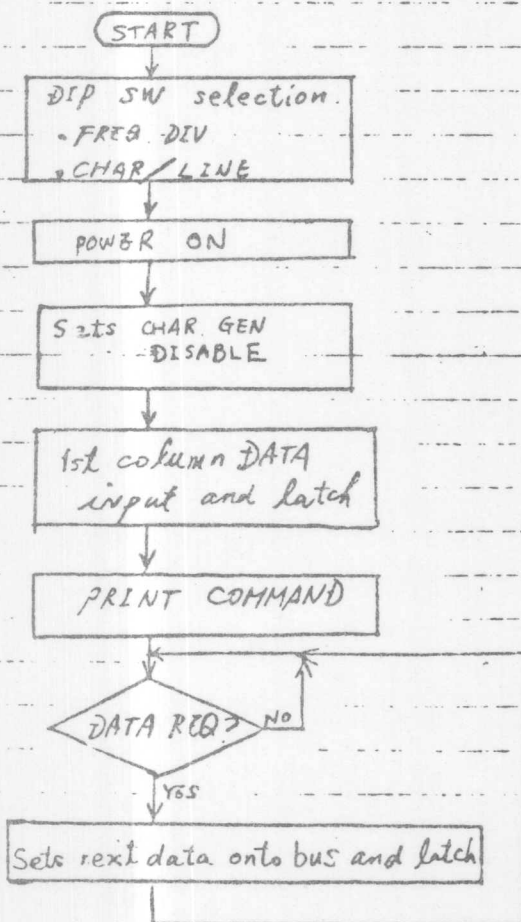 START
DIP SW selection.
• FREQ DIV
• CHAR/LINE
POWER ON
Sets CHAR. GEN
DISABLE
1st column DATA
input and latch
PRINT COMMAND
DATA REQ?
NO
YES
Sets next data onto bus and latch